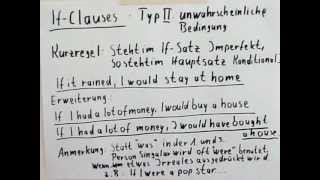 If-Clauses · Typ II: unwahrscheinliche
Bedingung
Kurzregel: Steht im If-Satz Imperfekt,
So steht im Hauptsatz Konditional I
If it rained, I would stay at home
Erweiterung:
If I had a lot of money, I would buy a house
If I had a lot of money, I would have bought
a house
Anmerkung: Statt "was" in der 1. und 3.
Person Singular wird oft "were" benutzt,
Wenn etwas Irreales ausgedrückt wird
z.B.: If I were a pop star...